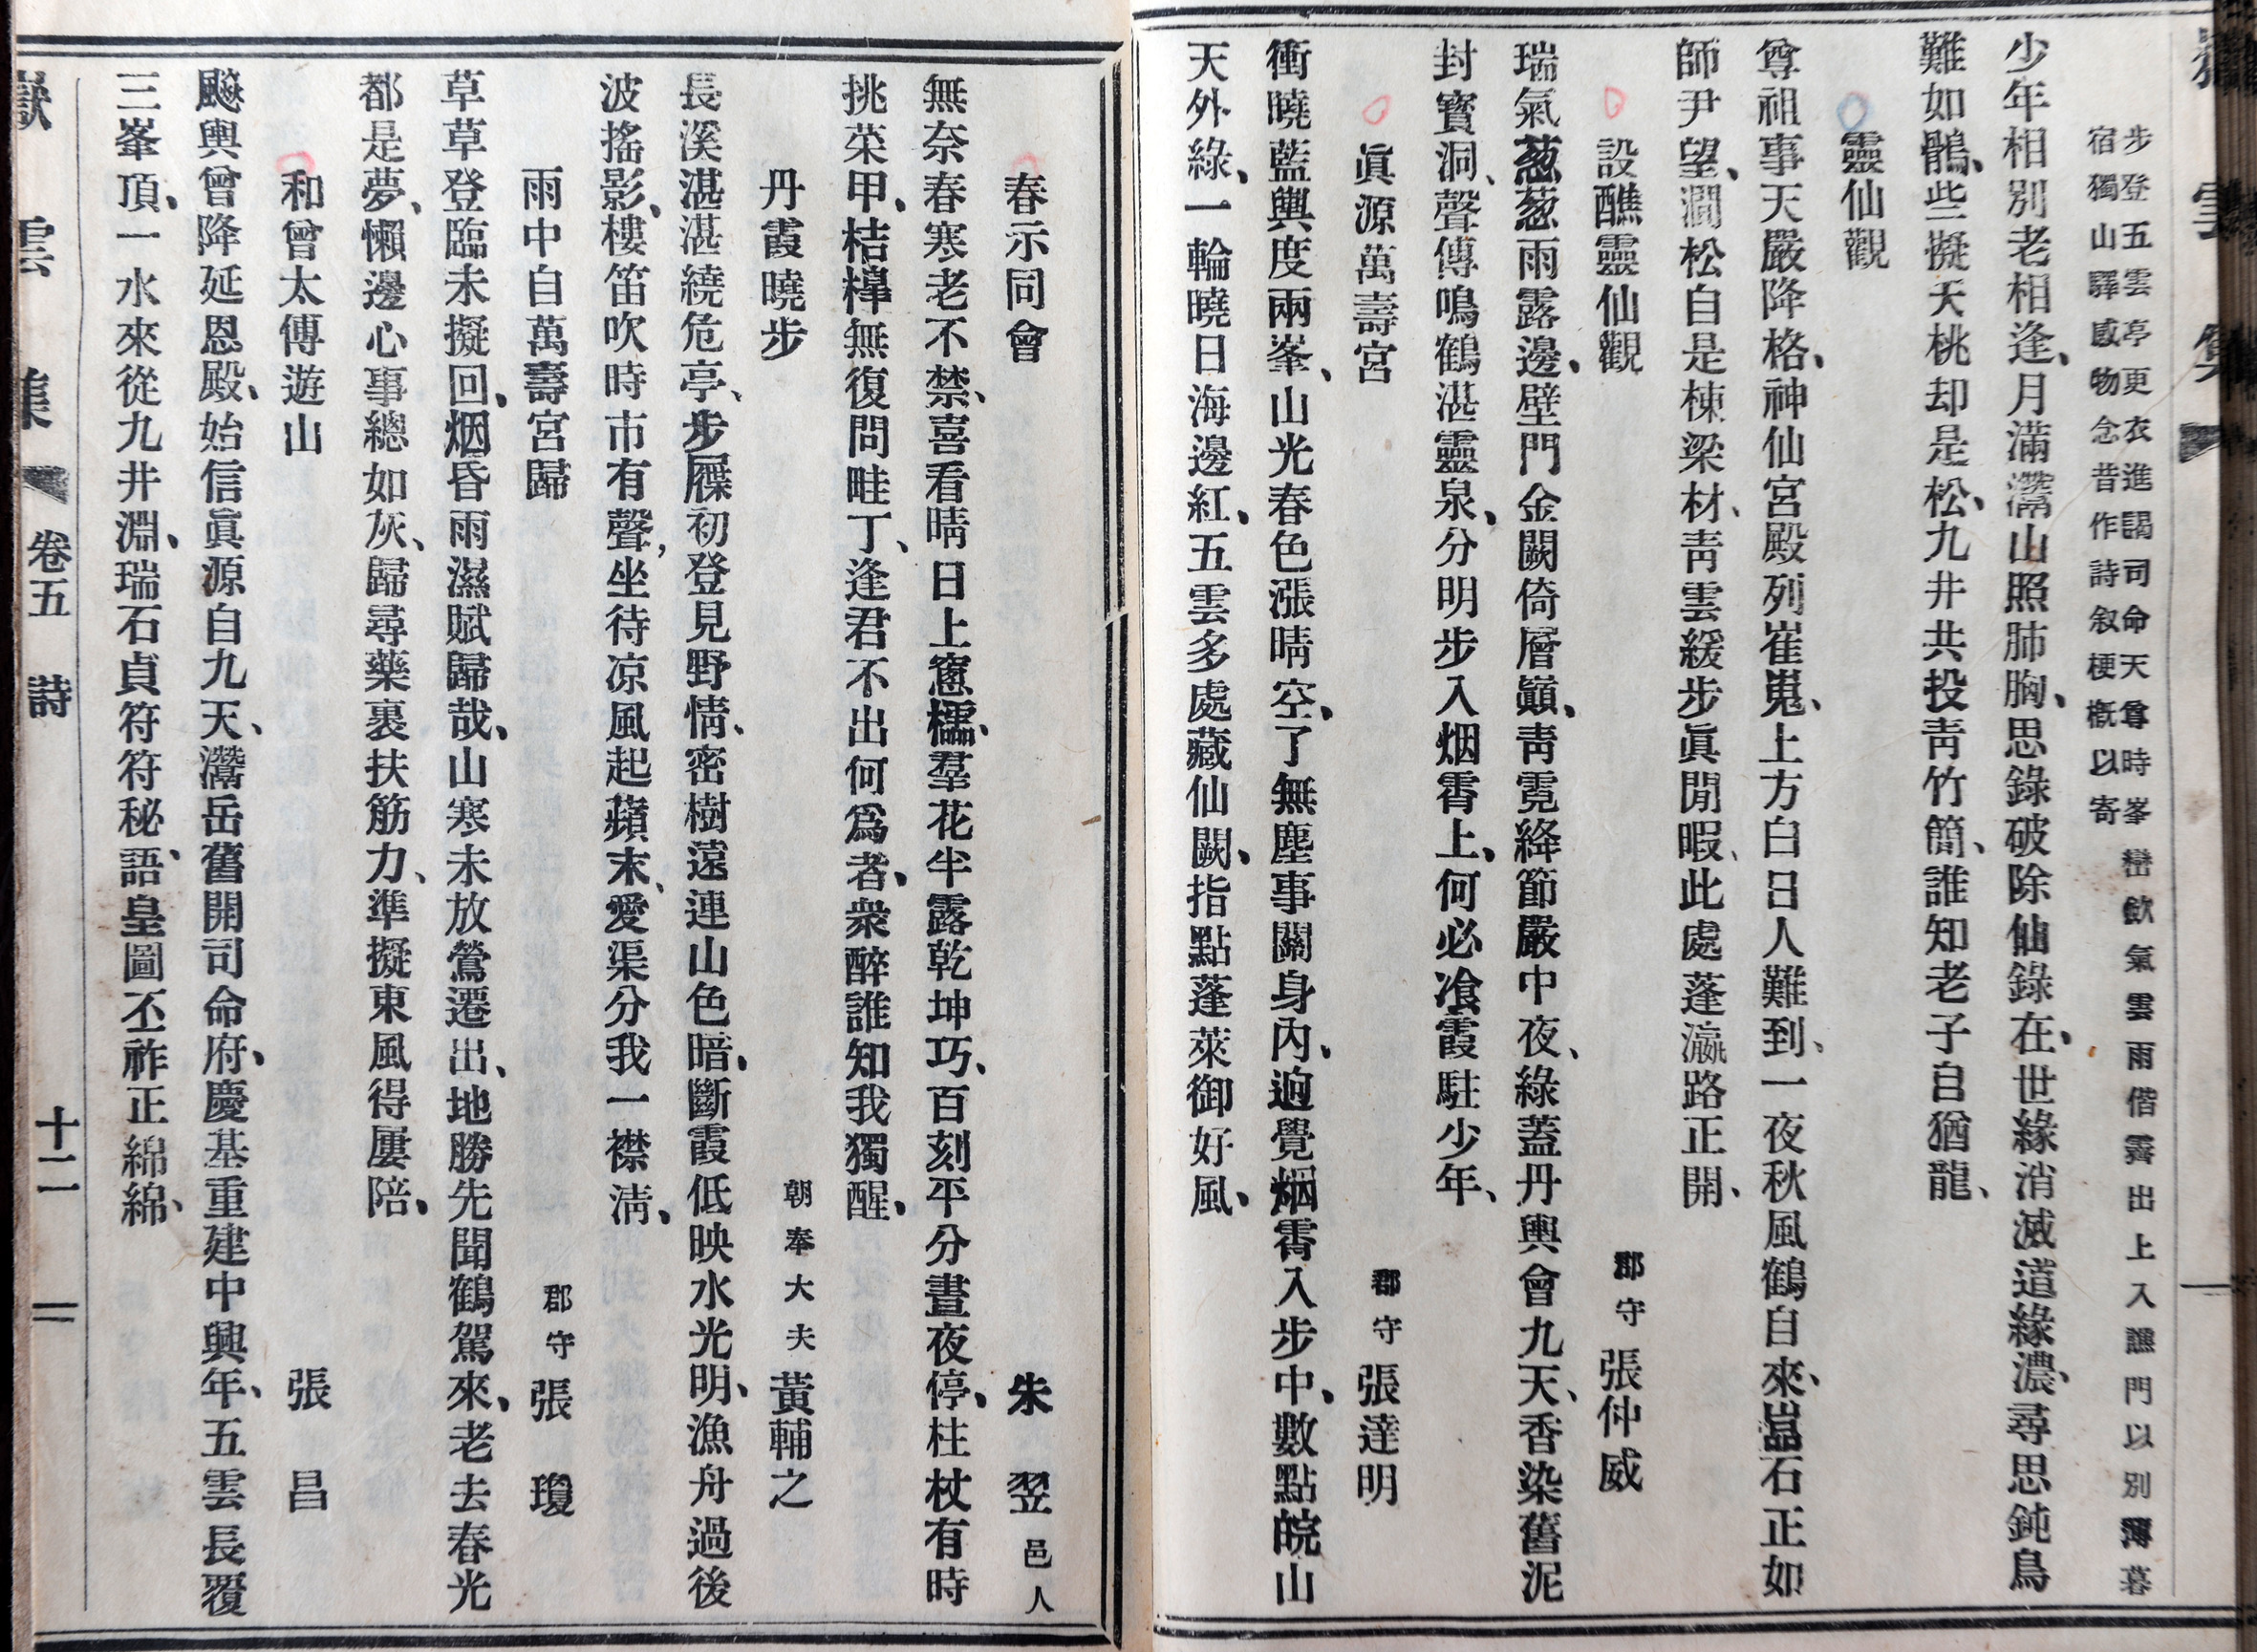 步登五雲亭更衣進謁司命天尊時峯巒歛氣雲雨偕霽出上入譙門以別薄暮
宿獨山驛感物念昔作詩叙梗槪以寄
少年相別老相逢、月滿灊山照肺胸、思錄破除仙錄在、世緣消滅道緣濃、尋思鈍鳥
難如鶻、些擬夭桃却是松、九井共投靑竹簡、誰知老子自猶龍、
靈仙觀
尊祖事天嚴降格、神仙宮殿列崔嵬、上方白日人難到、一夜秋風鶴自來、嵓石正如
師尹望、澗松自是棟梁材、靑雲緩步眞閒暇、此處蓬瀛路正開、
設醮靈仙觀 郡守 張仲威
瑞氣葱葱雨露邊、壁門金闕倚層巓、靑霓絳節嚴中夜、綠蓋丹輿會九天、香染舊泥
封寶洞、聲傳鳴鶴湛靈泉、分明步入烟霄上、何必飡霞駐少年、
眞源萬壽宮 郡守 張達明
衝曉藍輿度兩峯、山光春色漲晴空、了無塵事關身內、迥覺烟霄入步中、數點皖山
天外綠、一輪曉日海邊紅、五雲多處藏仙闕、指點蓬萊御好風、
春示同會 朱翌 邑人
無奈春寒老不禁、喜看晴日上窻櫺、羣花半露乾坤巧、百刻平分晝夜停、柱杖有時
挑菜甲、桔槹無復問畦丁、逢君不出何爲者、衆醉誰知我獨醒、
丹霞曉步 朝奉大夫 黃輔之
長溪湛湛繞危亭、步屧初登見野情、密樹遠連山色暗、斷霞低映水光明、漁舟過後
波搖影、樓笛吹時市有聲、坐待凉風起蘋末、愛渠分我一襟淸、
雨中自萬壽宮歸 郡守 張瓊
草草登臨未擬回、烟昏雨濕賦歸哉、山寒未放鶯遷出、地勝先聞鶴駕來、老去春光
都是夢、懶邊心事總如灰、歸尋藥裹扶筋力、準擬東風得屢陪、
和曾太傅遊山 張昌
飈輿曾降延恩殿、始信眞源自九天、灊岳舊開司命府、慶基重建中興年、五雲長覆
三峯頂、一水來從九井淵、瑞石貞符符秘語、皇圖丕祚正綿綿、
嶽雲集 卷五 詩 十二